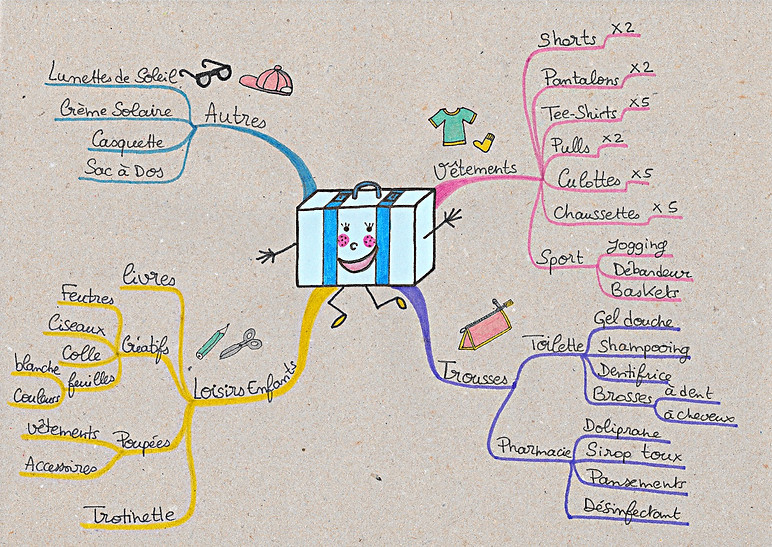 Lunettes de Soleil
Crème Solaire
Casquette
Sac à Dos
Autres
Vêtements
Shorts x2
Pantalons x2
Tee-Shirts x5
Pulls x2
Culottes x5
Chaussettes x5
Sport
Jogging
Débardeur
Baskets
Loisirs Enfants
livres
Créatifs
Feutres
Ciseaux
Colle
feuilles
blanche
Couleurs
Poupées
vêtements
Accessoires
Trotinette
Trousses
Toilette
Gel douche
Shampooing
Dentifrice
Brosses
à dent
à cheveux
Pharmacie
Doliprane
Sirop toux
Pansements
Désinfectant